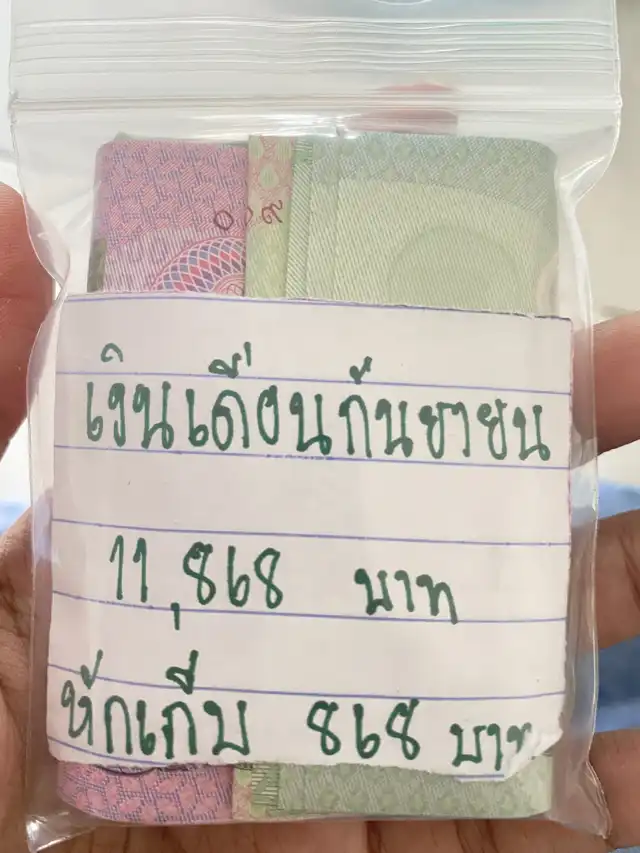 เงินเดือนกันยายน
11,868 บาท
หักเก็บ 868 บาท